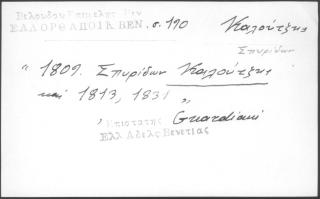 Βελούδου Ἐπιμέλης Βεν
ΕΛΛΟΡΘΑΠΟΙΚ ΒΕΝ. σ. 190 Καλούτζης
Σπυρίδων
"1809. Σπυρίδων Καλούτζης
και 1813, 1831 "
"Ἐπιστάτης Guardiani
Ελλ Αδελφ Βενετίας